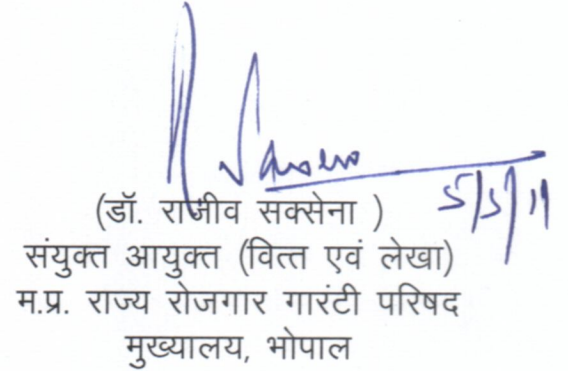 5/5/11
(डॉ. राजीव सक्सेना )
संयुक्त आयुक्त (वित्त एवं लेखा)
म.प्र. राज्य रोजगार गारंटी परिषद
मुख्यालय, भोपाल